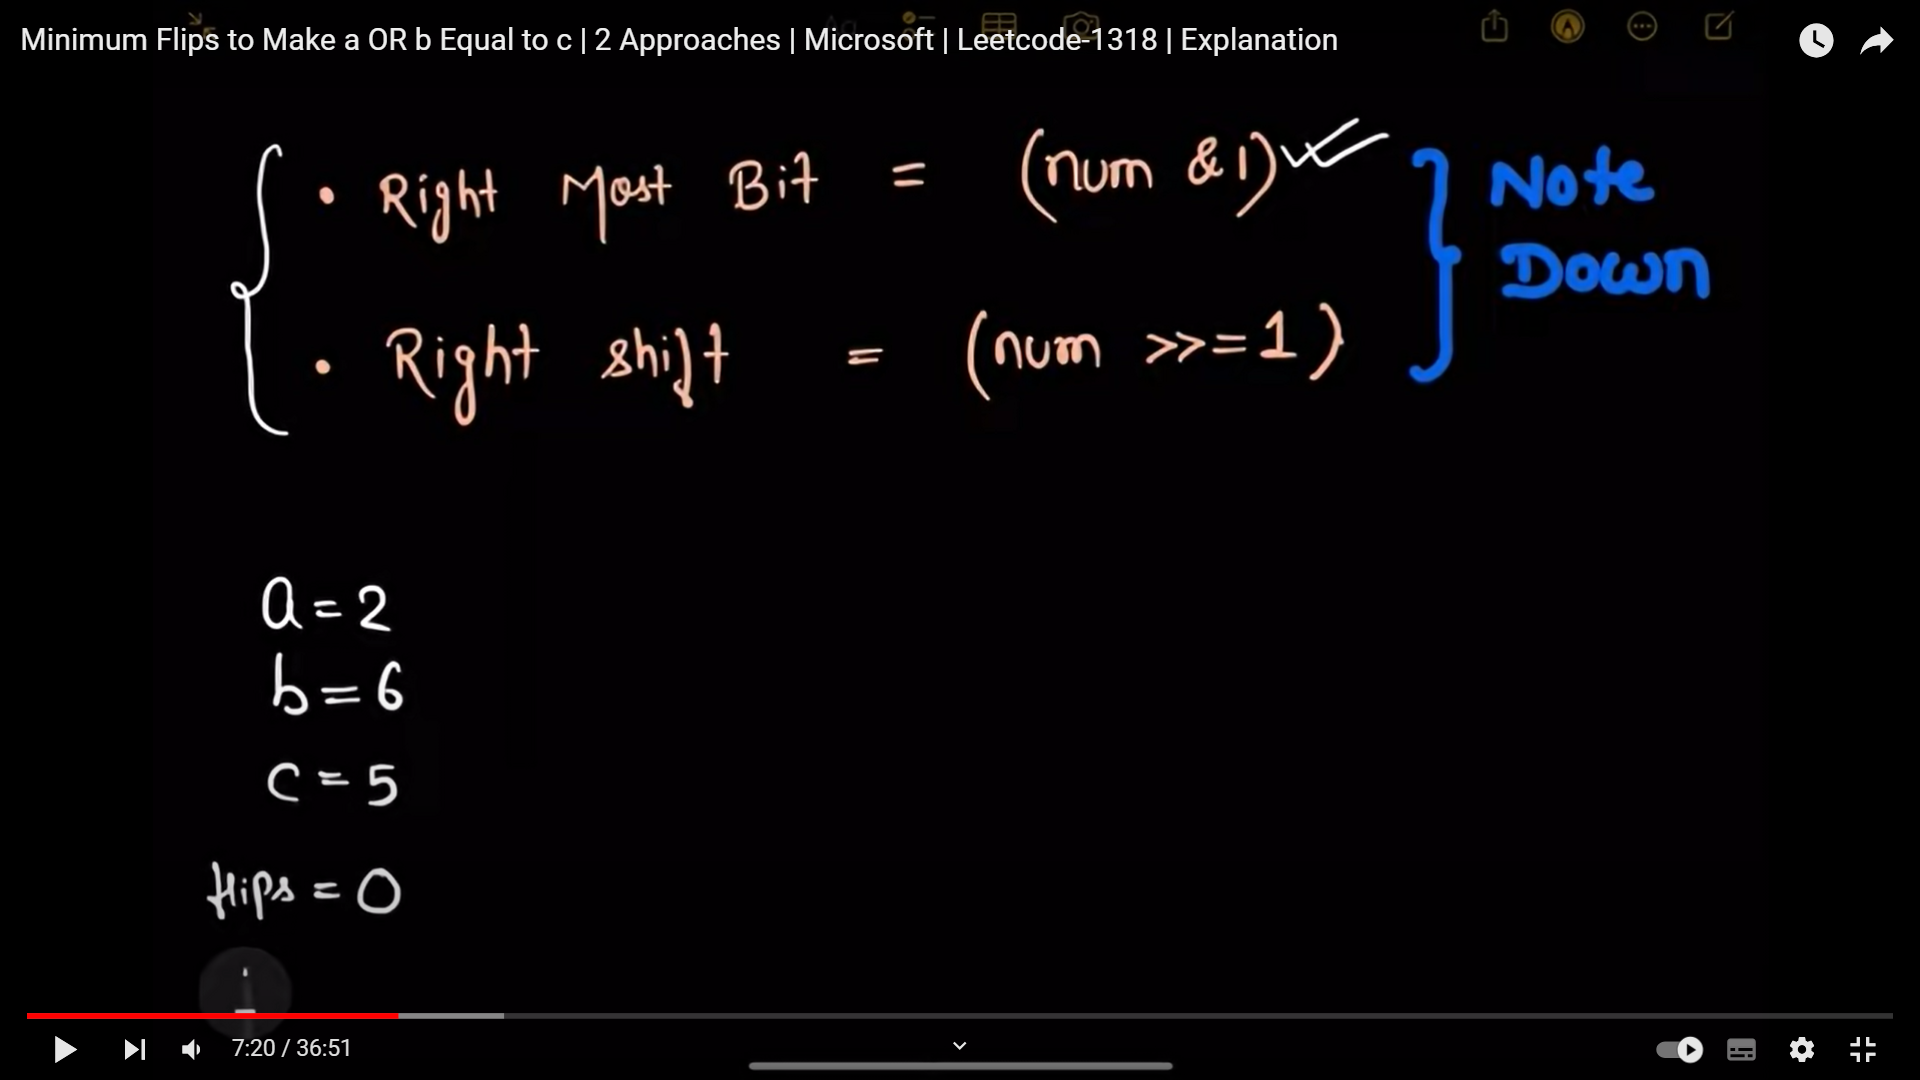 Minimum Flips to Make a OR b Equal to c | 2 Approaches | Microsoft | Leetcode-1318 | Explanation
• Right Most Bit = (num & 1)
Note
Down
• Right shift = (num >>= 1)
a = 2
b = 6
c = 5
flips = 0
7:20 / 36:51